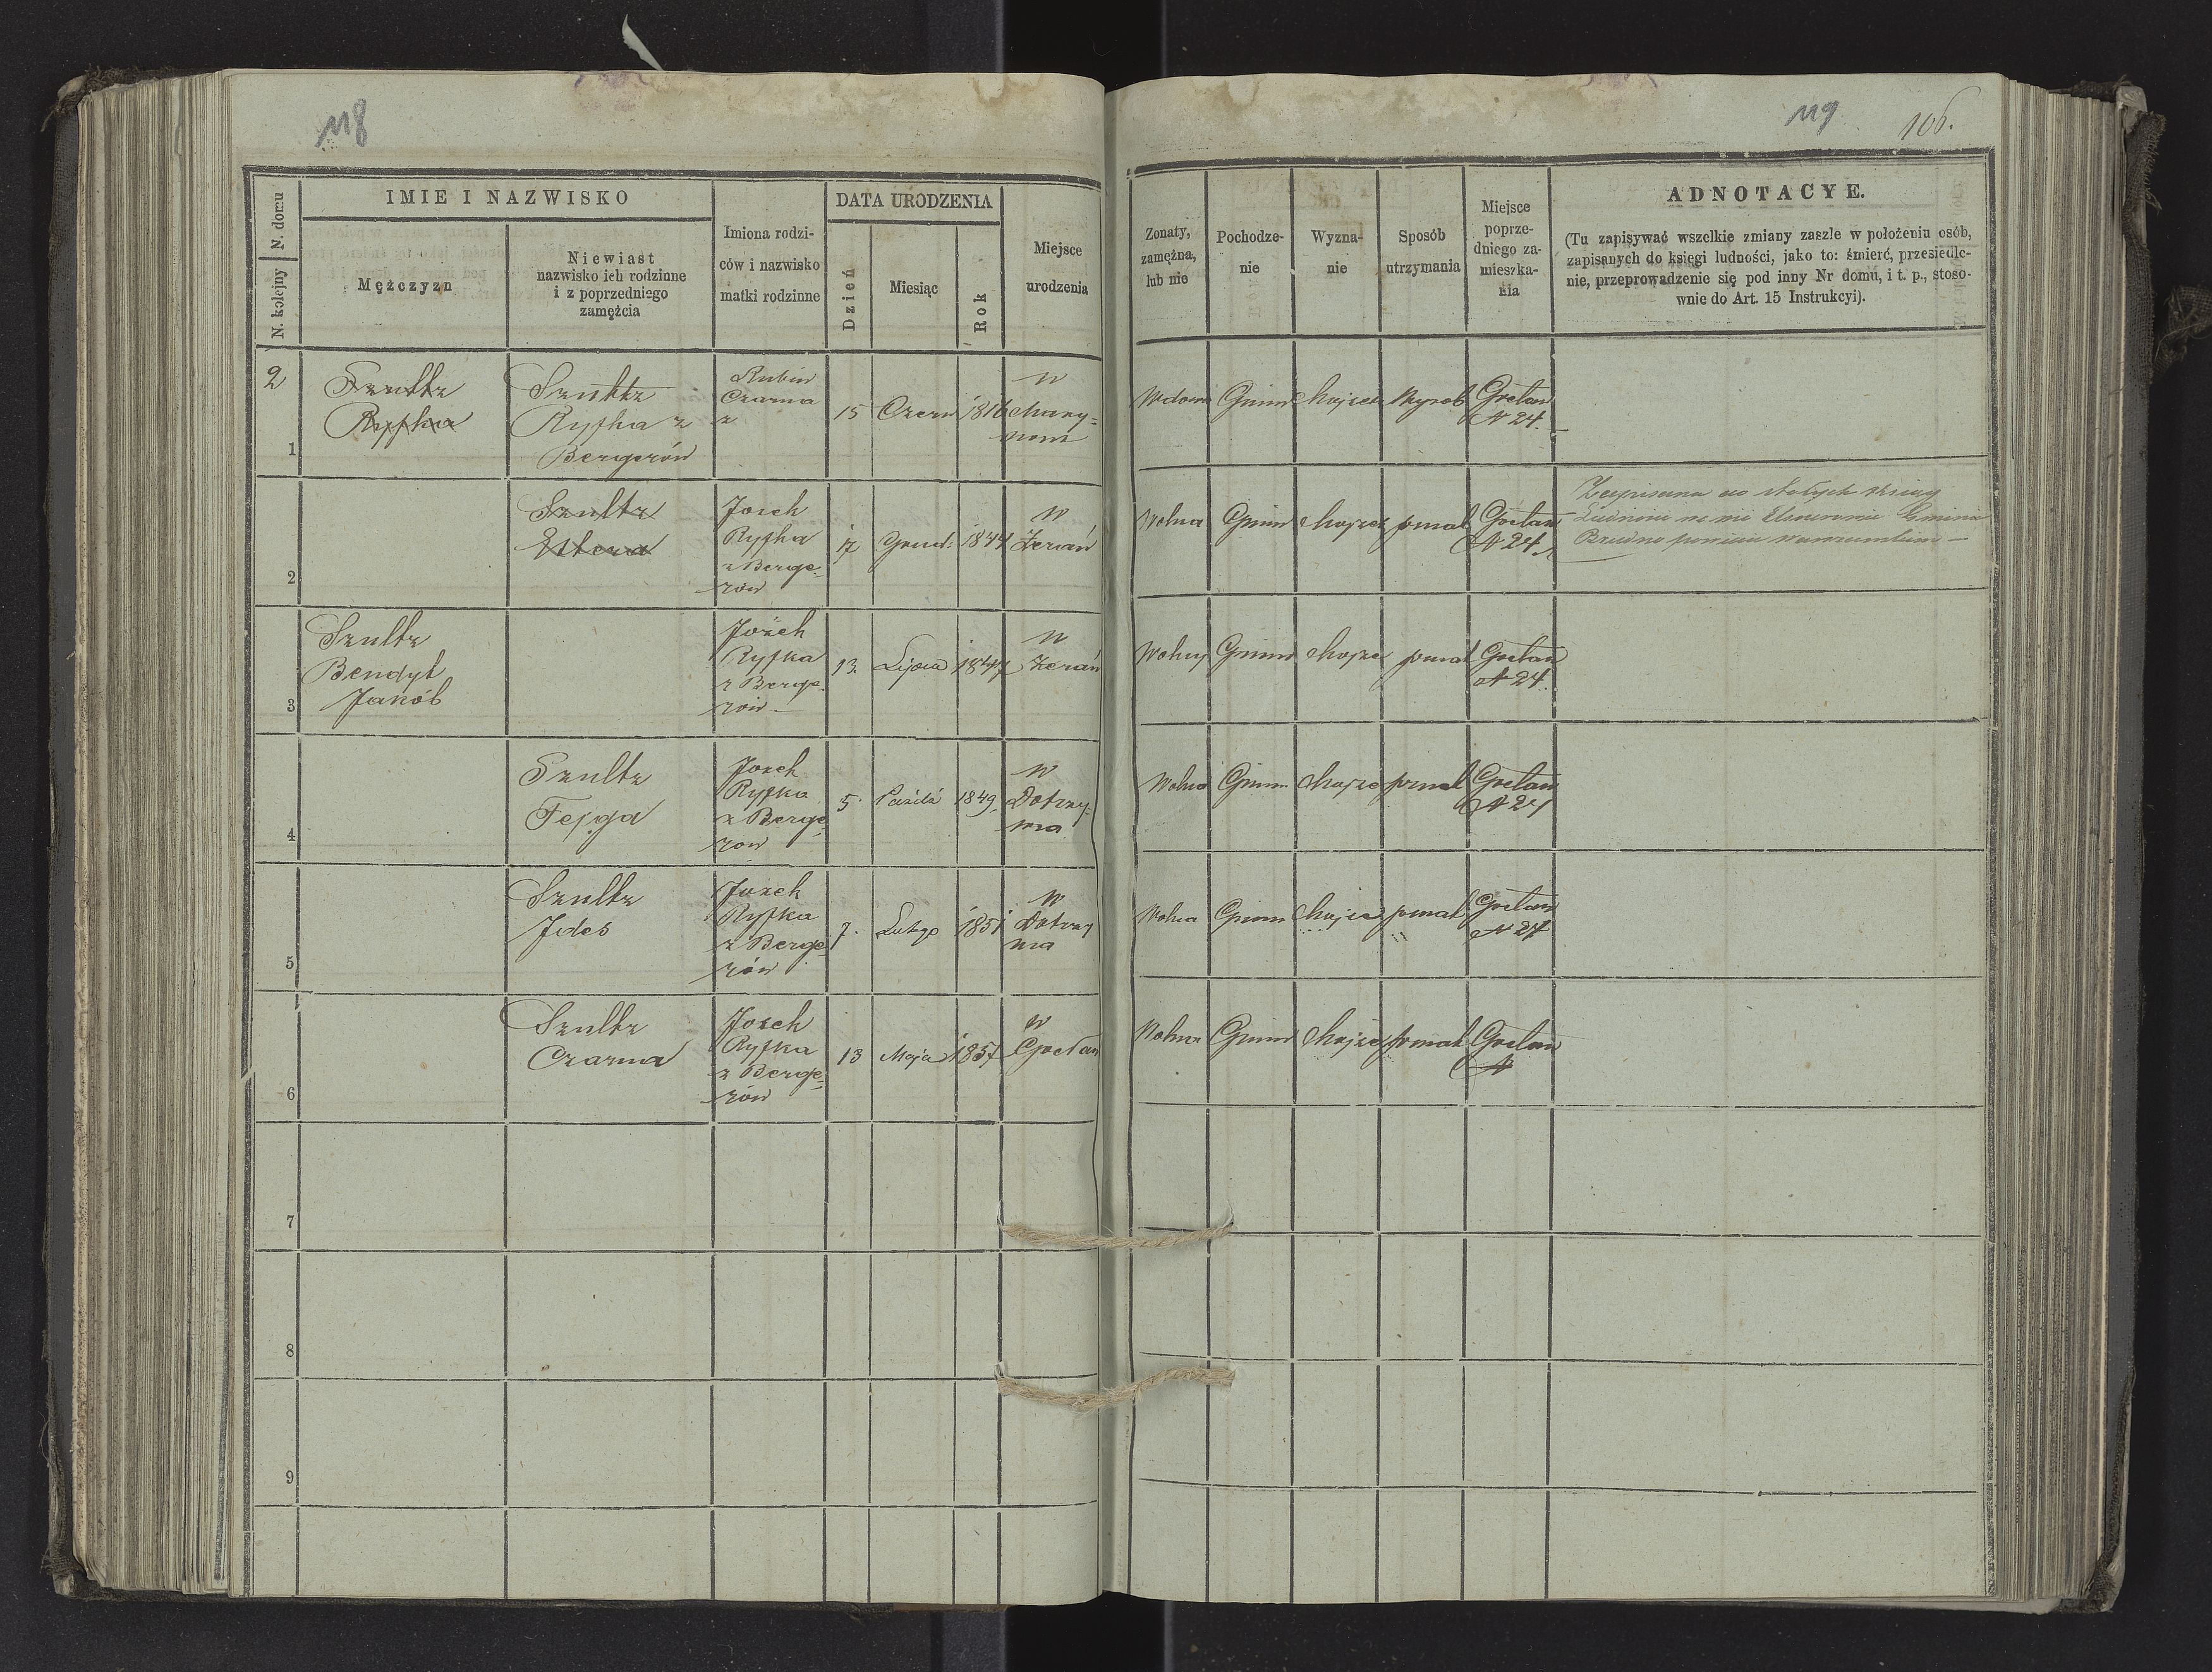 118
119
106.
N. kolejny N. domu
IMIE I NAZWISKO
Mężczyzn
Niewiast
nazwisko ich rodzinne
i z poprzedniego
zamęźcia
Imiona rodzi-
ców i nazwisko
matki rodzinne
DATA URODZENIA
Dzień
Miesiąc
Rok
Miejsce
urodzenia
Zonaty,
zamężna,
lub nie
Pochodze-
nie
Wyzna-
nie
Sposób
utrzymania
Miejsce
poprze-
dniego za-
mieszka-
nia
ADNOTACYE.
(Tu zapisywać wszelkie zmiany zaszłe w położeniu osób,
zapisanych do księgi ludności, jako to: śmierć, przesiedle-
nie, przeprowadzenie się pod inny Nr domu, i t. p., stoso-
wnie do Art. 15 Instrukcyi).
2
1
Szultz
Ryfka
Szultz
Ryfka z
Bergerów
Rubin
Czarna
z
15
Czerw
1816
w
Wdowa
Gmin
Mojżesz
Wyrob
N 24.
2
Szultz
Estera
Josek
Ryfka
z Berge-
rów
17
Grud.
1844
w
Żerań
Wolna
Gmin
Mojżesz
N 24
Zapisana do stałych ksiąg
3
Szultz
Bendyt
Jakób
Josek
Ryfka
z Berge-
rów
13
Lipca
1847
w
Żerań
Wolny
Gmin
Mojże
N 24.
4
Szultz
Fejga
Josek
Ryfka
z Berge-
row
5.
Paźdź
1849.
w
Dotrzy-
ma
Wolna
Gmin
Mojże
N 24
5
Szultz
Ides
Josek
Ryfka
z Berge-
rów
7.
Lutego
1851
w
Dotrzy
ma
Wolna
Gmin
N 24
6
Szultz
Czarna
Josek
Ryfka
z Berge-
rów
13
Maja
1857
w
Wolna
Gmin
Mojże
N
7
8
9